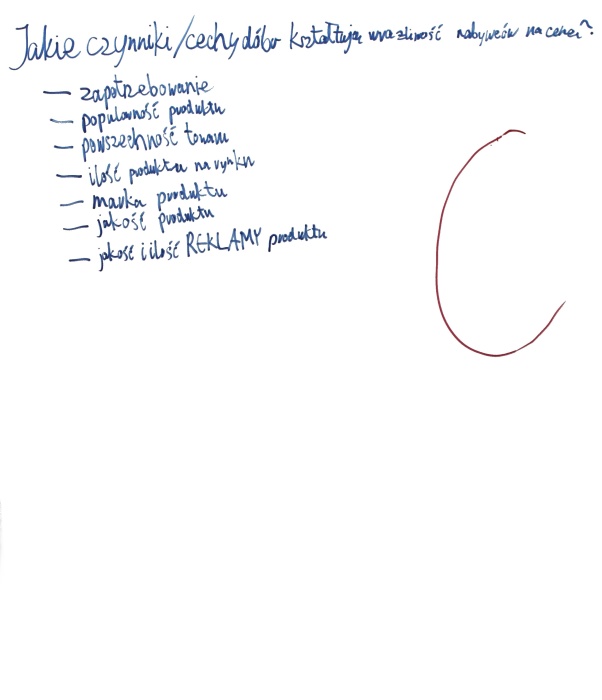 Jakie czynniki/cechy dóbr kształtują wrażliwość nabywców na cenę?
— zapotrzebowanie
— popularność produktu
— powszechność towaru
— ilość produktu na rynku
— marka produktu
— jakość produktu
— jakość i ilość REKLAMY produktu
C